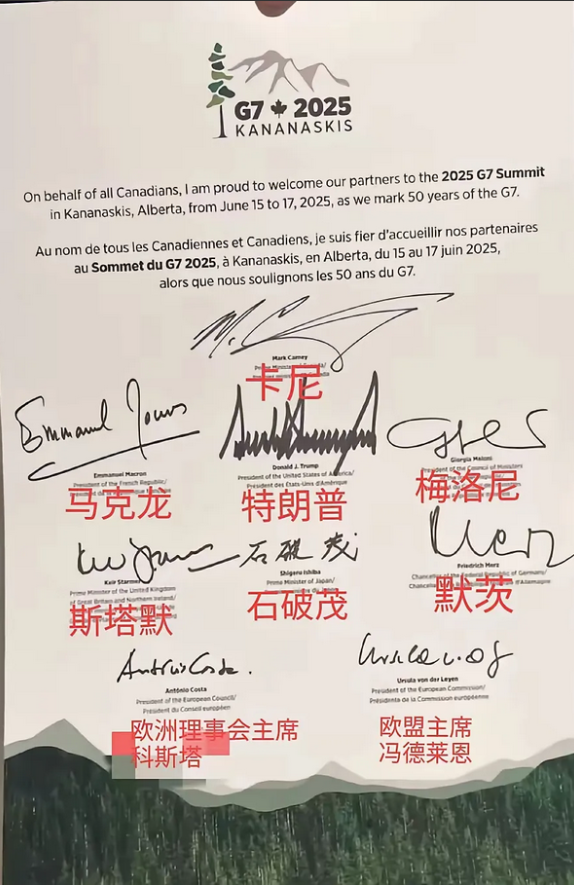 G7 2025
KANANASKIS
On behalf of all Canadians, I am proud to welcome our partners to the 2025 G7 Summit
in Kananaskis, Alberta, from June 15 to 17, 2025, as we mark 50 years of the G7.
Au nom de tous les Canadiennes et Canadiens, je suis fier d'accueillir nos partenaires
au Sommet du G7 2025, à Kananaskis, en Alberta, du 15 au 17 juin 2025,
alors que nous soulignons les 50 ans du G7.
Mark Carney
卡尼
Emmanuel Macron
President of the French Republic/
马克龙
Donald J. Trump
President of the United States of America/
Président des États-Unis d'Amérique
特朗普
Giorgia Meloni
President of the Council of Ministers
梅洛尼
Keir Starmer
Prime Minister of the United Kingdom
of Great Britain and Northern Ireland/
斯塔默
石破茂
Shigeru Ishiba
Prime Minister of Japan/
石破茂
Merz
Friedrich Merz
Chancellor of the Federal Republic of Germany/
默茨
António Costa.
António Costa
President of the European Council/
Président du Conseil européen
欧洲理事会主席
科斯塔
Ursula von der Leyen
President of the European Commission/
Présidente de la Commission européenne
欧盟主席
冯德莱恩